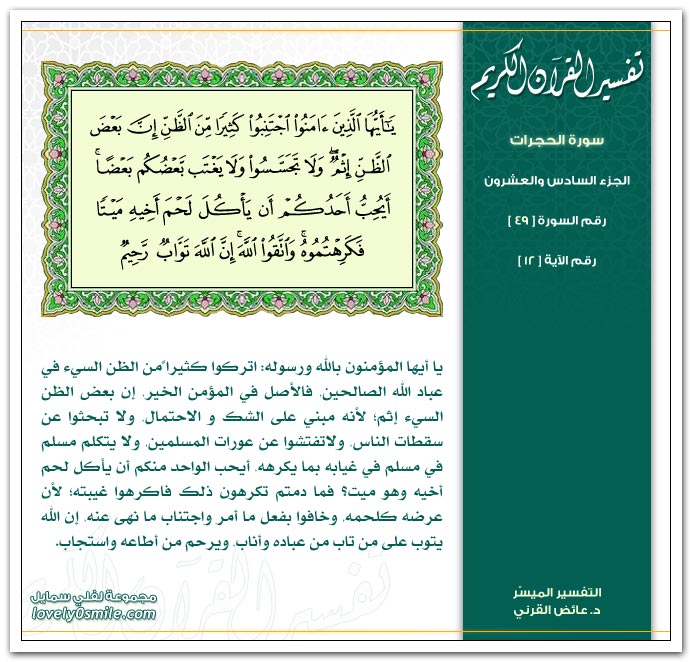 تفسير القرآن الكريم
سورة الحجرات
الجزء السادس والعشرون
رقم السورة [ ٤٩ ]
رقم الآية [ ١٢ ]
يَٰٓأَيُّهَا ٱلَّذِينَ ءَامَنُوا۟ ٱجْتَنِبُوا۟ كَثِيرًا مِّنَ ٱلظَّنِّ إِنَّ بَعْضَ
ٱلظَّنِّ إِثْمٌ ۖ وَلَا تَجَسَّسُوا۟ وَلَا يَغْتَب بَّعْضُكُم بَعْضًا ۚ
أَيُحِبُّ أَحَدُكُمْ أَن يَأْكُلَ لَحْمَ أَخِيهِ مَيْتًا
فَكَرِهْتُمُوهُ ۚ وَٱتَّقُوا۟ ٱللَّهَ ۚ إِنَّ ٱللَّهَ تَوَّابٌ رَّحِيمٌ
يا أيها المؤمنون بالله ورسوله: اتركوا كثيرا ًمن الظن السيء في
عباد الله الصالحين، فالأصل في المؤمن الخير، إن بعض الظن
السيء إثم؛ لأنه مبني على الشك و الاحتمال، ولا تبحثوا عن
سقطات الناس، ولاتفتشوا عن عورات المسلمين، ولا يتكلم مسلم
في مسلم في غيابه بما يكرهه، أيحب الواحد منكم أن يأكل لحم
أخيه وهو ميت؟ فما دمتم تكرهون ذلك فاكرهوا غيبته؛ لأن
عرضه كلحمه، وخافوا بفعل ما أمر واجتناب ما نهى عنه، إن الله
يتوب على من تاب من عباده وأناب، ويرحم من أطاعه واستجاب.
تفسير القرآن الكريم
التفسير الميسّر
د. عائض القرني
مجموعة لفلي سمايل
lovely0smile.com